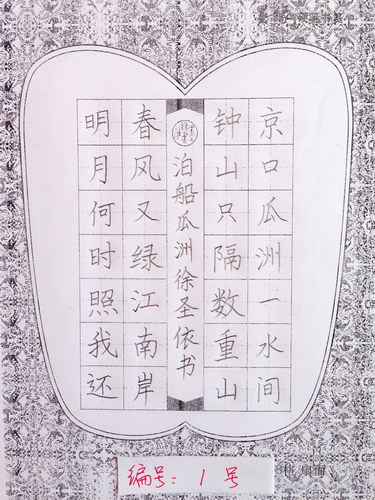 京口瓜洲一水间
钟山只隔数重山
泊船瓜洲徐圣依书
春风又绿江南岸
明月何时照我还
编号：1号